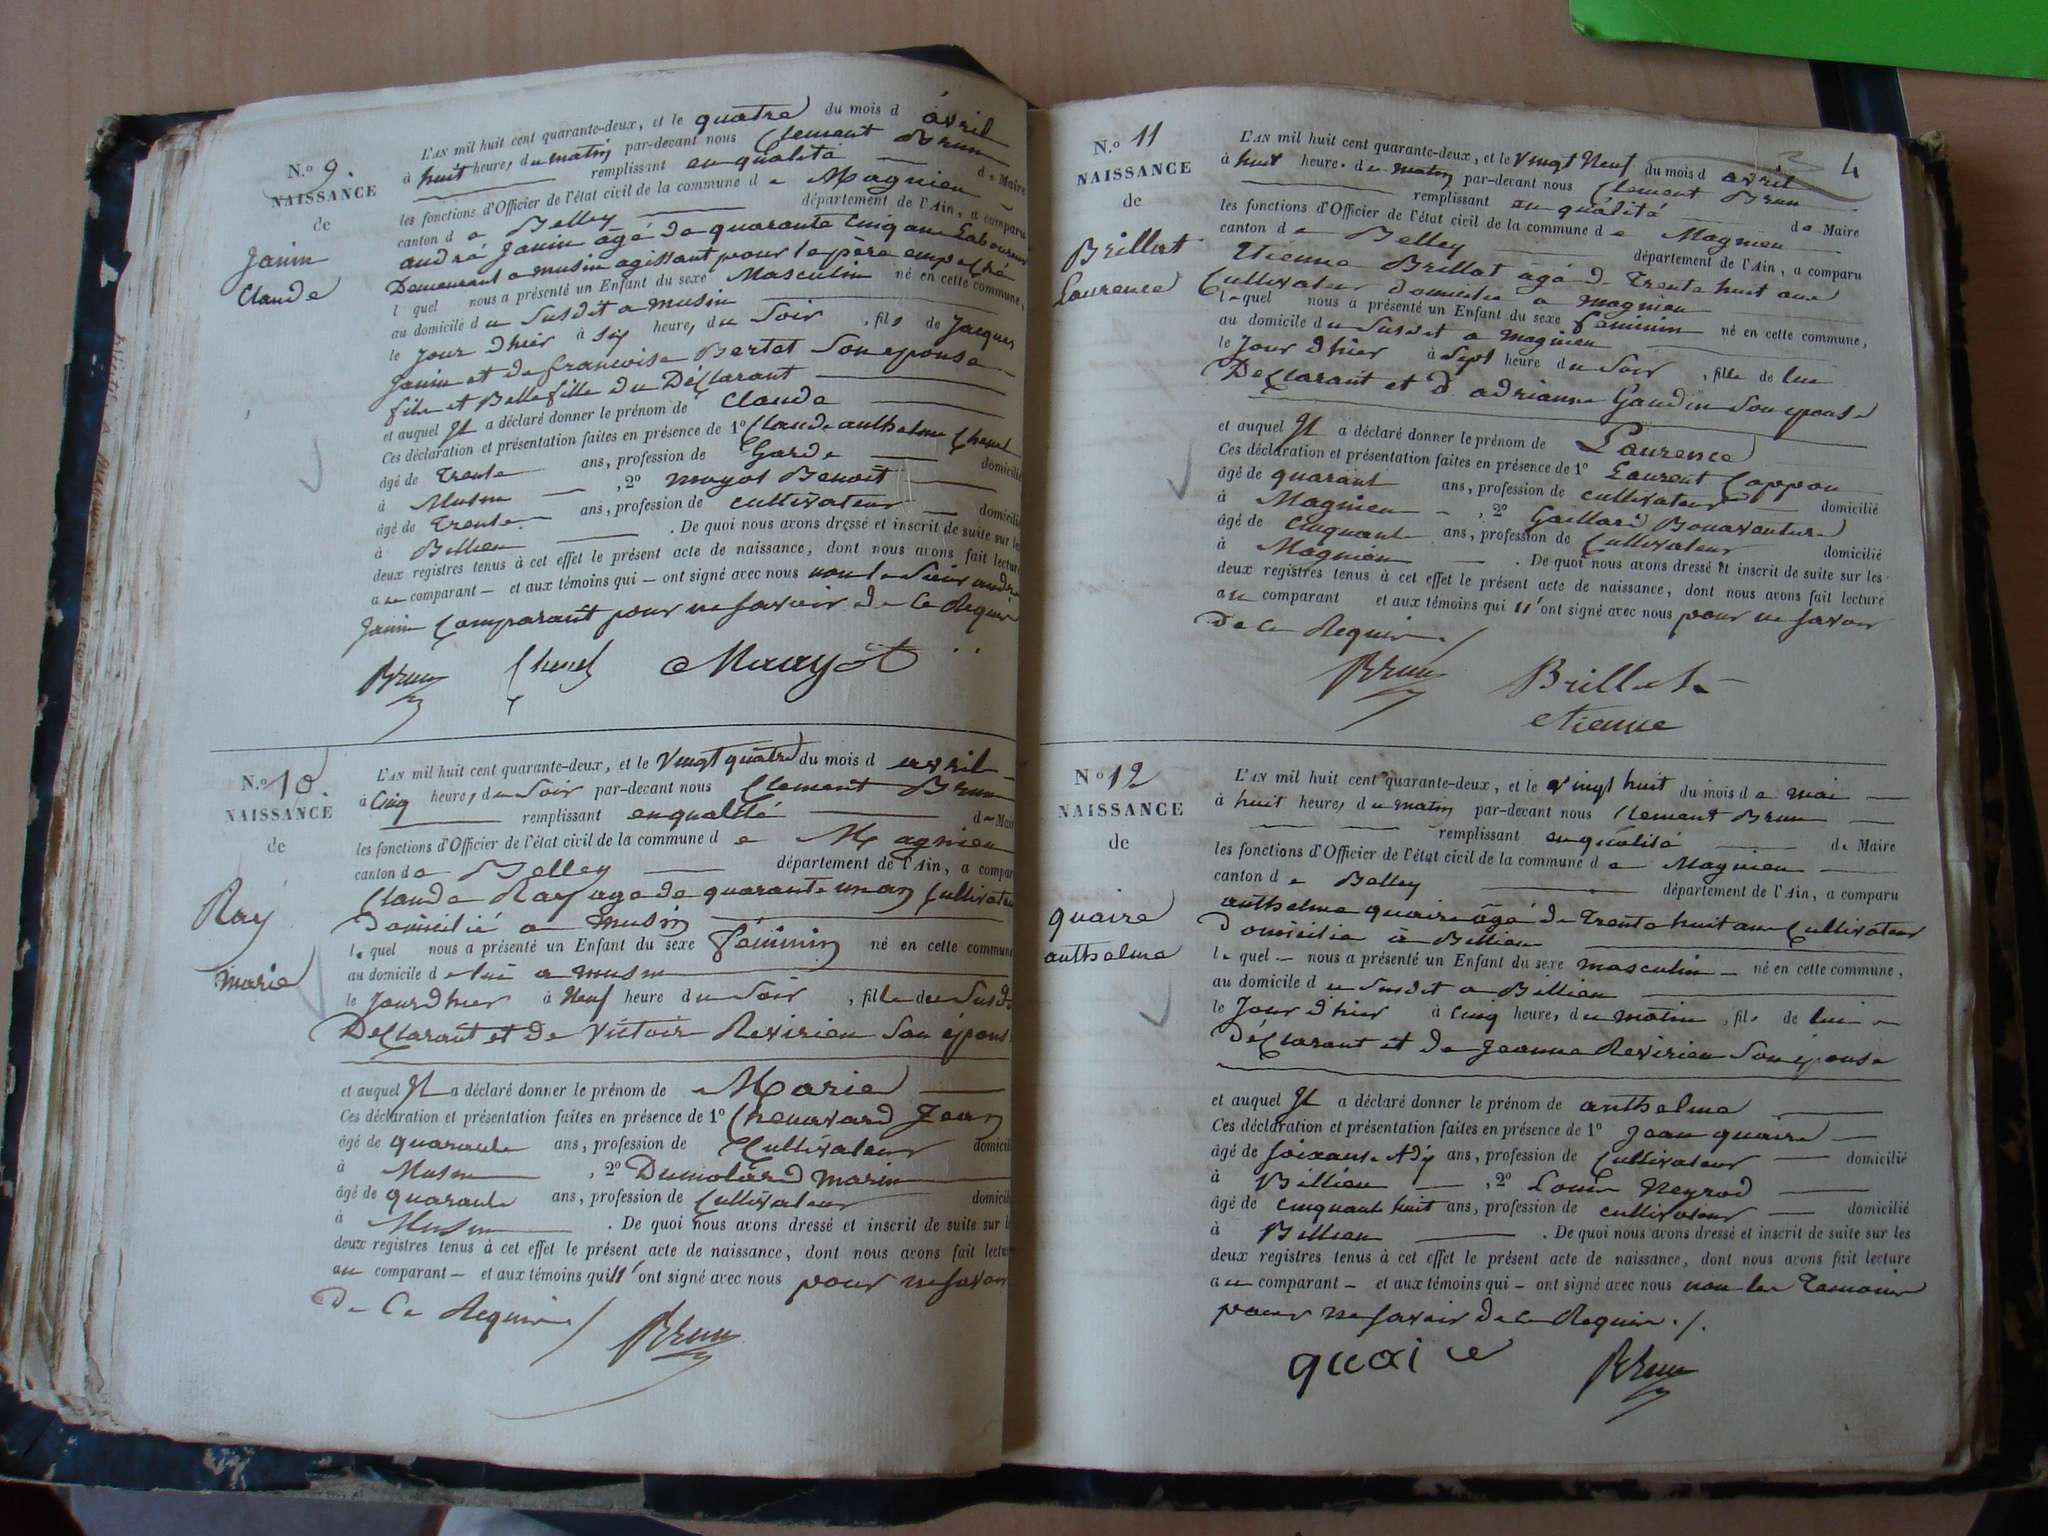 N.o 9.
NAISSANCE
de
Janin
Claude
L'AN mil huit cent quarante-deux, et le quatre du mois d avril
à huit heure, du matin par-devant nous Clement Brun
remplissant en qualité de Maire
les fonctions d'Officier de l'état civil de la commune de Magnieu
canton de Belley département de l'Ain, a comparu
andré Janin âgé de quarante cinq ans Laboureur
Demeurant a musin agissant pour le père empeché
lequel nous a présenté un Enfant du sexe Masculin né en cette commune,
au domicile du Susdit a musin
le Jour d'hier à six heure, du Soir, fils de Jacques
Janin et de francoise Bertet Son epouse
fils et Belle fille du Déclarant
et auquel Il a déclaré donner le prénom de Claude
Ces déclaration et présentation faites en présence de 1° Claude anthelme
âgé de trente ans, profession de Garde domicilié
à Musin, 2° mayot Benoit
âgé de trente ans, profession de cultivateur domicilié
à Billieu. De quoi nous avons dressé et inscrit de suite sur les
deux registres tenus à cet effet le présent acte de naissance, dont nous avons fait lecture
au comparant et aux témoins qui ont signé avec nous non le Sieur andré
Janin Comparant pour ne savoir de ce Requis
Brun Mayot
N.o 10.
NAISSANCE
de
Ray
marie
L'AN mil huit cent quarante-deux, et le Vingt quatre du mois d avril
à Cinq heure, du Soir par-devant nous Clement Brun
remplissant en qualité de Mair
les fonctions d'Officier de l'état civil de la commune de Magnieu
canton de Belley département de l'Ain, a compar
Claude Ray age de quarante un an Cultivateu
Domicilié a Musin
lequel nous a présenté un Enfant du sexe féminin né en cette commune
au domicile de lui a musin
le Jour d'hier à Neuf heure du Soir, fille du Susdi
Declarant et de Victoire Revirieu Son épous
et auquel Il a déclaré donner le prénom de Marie
Ces déclaration et présentation faites en présence de 1° Chenavard Jean
âgé de quarante ans, profession de Cultivateur domicili
à Musin, 2° Dumolard Marin
âgé de quarante ans, profession de Cultivateur domicili
à Musin. De quoi nous avons dressé et inscrit de suite sur l
deux registres tenus à cet effet le présent acte de naissance, dont nous avons fait lectur
au comparant et aux témoins qui n'ont signé avec nous pour ne savoir
De Ce Requis
Brun
4
N.o 11
NAISSANCE
de
Brillat
Laurence
L'AN mil huit cent quarante-deux, et le Vingt Neuf du mois d avril
à huit heure. du matin par-devant nous Clement Brun
remplissant en qualité de Maire
les fonctions d'Officier de l'état civil de la commune de Magnieu
canton de Belley département de l'Ain, a comparu
Etienne Brillat âgé de Trente huit ans
Cultivateur domicilié a magnieu
lequel nous a présenté un Enfant du sexe féminin né en cette commune,
au domicile du Susdit a magnieu
le Jour d'hier à Sept heure du Soir, fille de lui
Declarant et d'adrianne Gaudin Son epouse
et auquel Il a déclaré donner le prénom de Laurence
Ces déclaration et présentation faites en présence de 1° Laurent Cappon
âgé de quarant ans, profession de cultivateur domicilié
à Magnieu, 2° Gaillard Bonaventure
âgé de cinquante ans, profession de Cultivateur domicilié
à Magnieu. De quoi nous avons dressé et inscrit de suite sur les
deux registres tenus à cet effet le présent acte de naissance, dont nous avons fait lecture
au comparant et aux témoins qui n'ont signé avec nous pour ne savoir
De Ce Requis
Brun Brillat
etienne
N.o 12
NAISSANCE
de
quaire
anthelme
L'AN mil huit cent quarante-deux, et le vingt huit du mois de mai
à huit heure, du matin par-devant nous Clement Brun
remplissant en qualité de Maire
les fonctions d'Officier de l'état civil de la commune de Magnieu
canton de Belley département de l'Ain, a comparu
anthelme quaire âgé de Trente huit ans Cultivateur
Domicilié à Billieu
lequel nous a présenté un Enfant du sexe masculin né en cette commune,
au domicile du Susdit a Billieu
le Jour d'hier à Cinq heure, du matin, fils de lui
Déclarant et de Jeanne Revirieu Son épouse
et auquel Il a déclaré donner le prénom de anthelme
Ces déclaration et présentation faites en présence de 1° Jean quaire
âgé de Soixante dix ans, profession de Cultivateur domicilié
à Billieu, 2° Louis Neyrod
âgé de cinquante huit ans, profession de cultivateur domicilié
à Billieu. De quoi nous avons dressé et inscrit de suite sur les
deux registres tenus à cet effet le présent acte de naissance, dont nous avons fait lecture
au comparant et aux témoins qui ont signé avec nous non les Temoins
pour ne savoir de ce Requis./.
quaire Brun